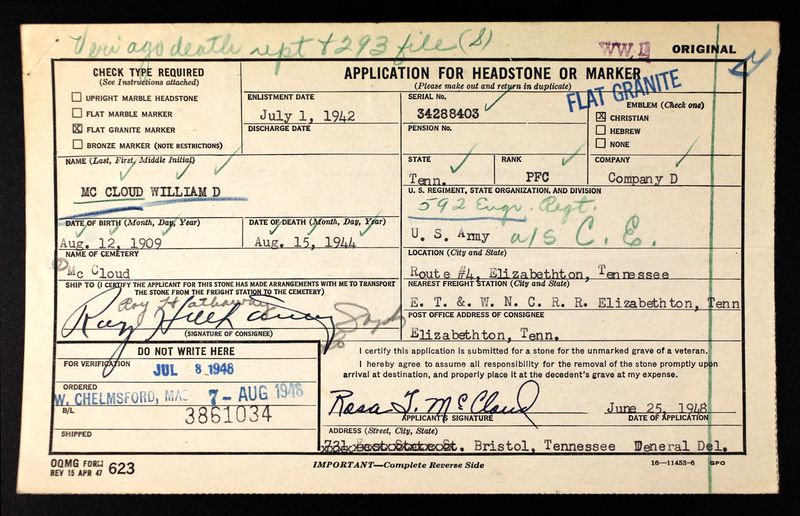 Veri ago death rept + 293 file (S)
WW II ORIGINAL
CHECK TYPE REQUIRED
(See Instructions attached)
UPRIGHT MARBLE HEADSTONE
FLAT MARBLE MARKER
☒ FLAT GRANITE MARKER
BRONZE MARKER (NOTE RESTRICTIONS)
APPLICATION FOR HEADSTONE OR MARKER
(Please make out and return in duplicate)
FLAT GRANITE
ENLISTMENT DATE
July 1, 1942
DISCHARGE DATE
SERIAL No.
34288403
PENSION No.
EMBLEM (Check one)
☒ CHRISTIAN
HEBREW
NONE
NAME (Last, First, Middle Initial)
MC CLOUD WILLIAM D
STATE
Tenn.
RANK
PFC
COMPANY
Company D
U. S. REGIMENT, STATE ORGANIZATION, AND DIVISION
592 Engr. Regt.
U. S. Army a/s C. E.
DATE OF BIRTH (Month, Day, Year)
Aug. 12, 1909
DATE OF DEATH (Month, Day, Year)
Aug. 15, 1944
NAME OF CEMETERY
Mc Cloud
LOCATION (City and State)
Route #4, Elizabethton, Tennessee
SHIP TO (I CERTIFY THE APPLICANT FOR THIS STONE HAS MADE ARRANGEMENTS WITH ME TO TRANSPORT
THE STONE FROM THE FREIGHT STATION TO THE CEMETERY)
Roy Hathaway
Ray Hathaway
(SIGNATURE OF CONSIGNEE)
NEAREST FREIGHT STATION (City and State)
E. T. &. W. N. C. R. R. Elizabethton, Tenn
POST OFFICE ADDRESS OF CONSIGNEE
Elizabethton, Tenn.
DO NOT WRITE HERE
FOR VERIFICATION
JUL 8 1948
ORDERED
W. CHELMSFORD, MAS 7- AUG 1948
B/L
3861034
SHIPPED
I certify this application is submitted for a stone for the unmarked grave of a veteran.
I hereby agree to assume all responsibility for the removal of the stone promptly upon
arrival at destination, and properly place it at the decedent's grave at my expense.
Rosa T. McCloud June 25, 1948
APPLICANT'S SIGNATURE DATE OF APPLICATION
ADDRESS (Street, City, State)
731 East State St. Bristol, Tennessee Deneral Del.
OQMG FORM
REV 15 APR 47 623
IMPORTANT—Complete Reverse Side
16—11453-6 GPO